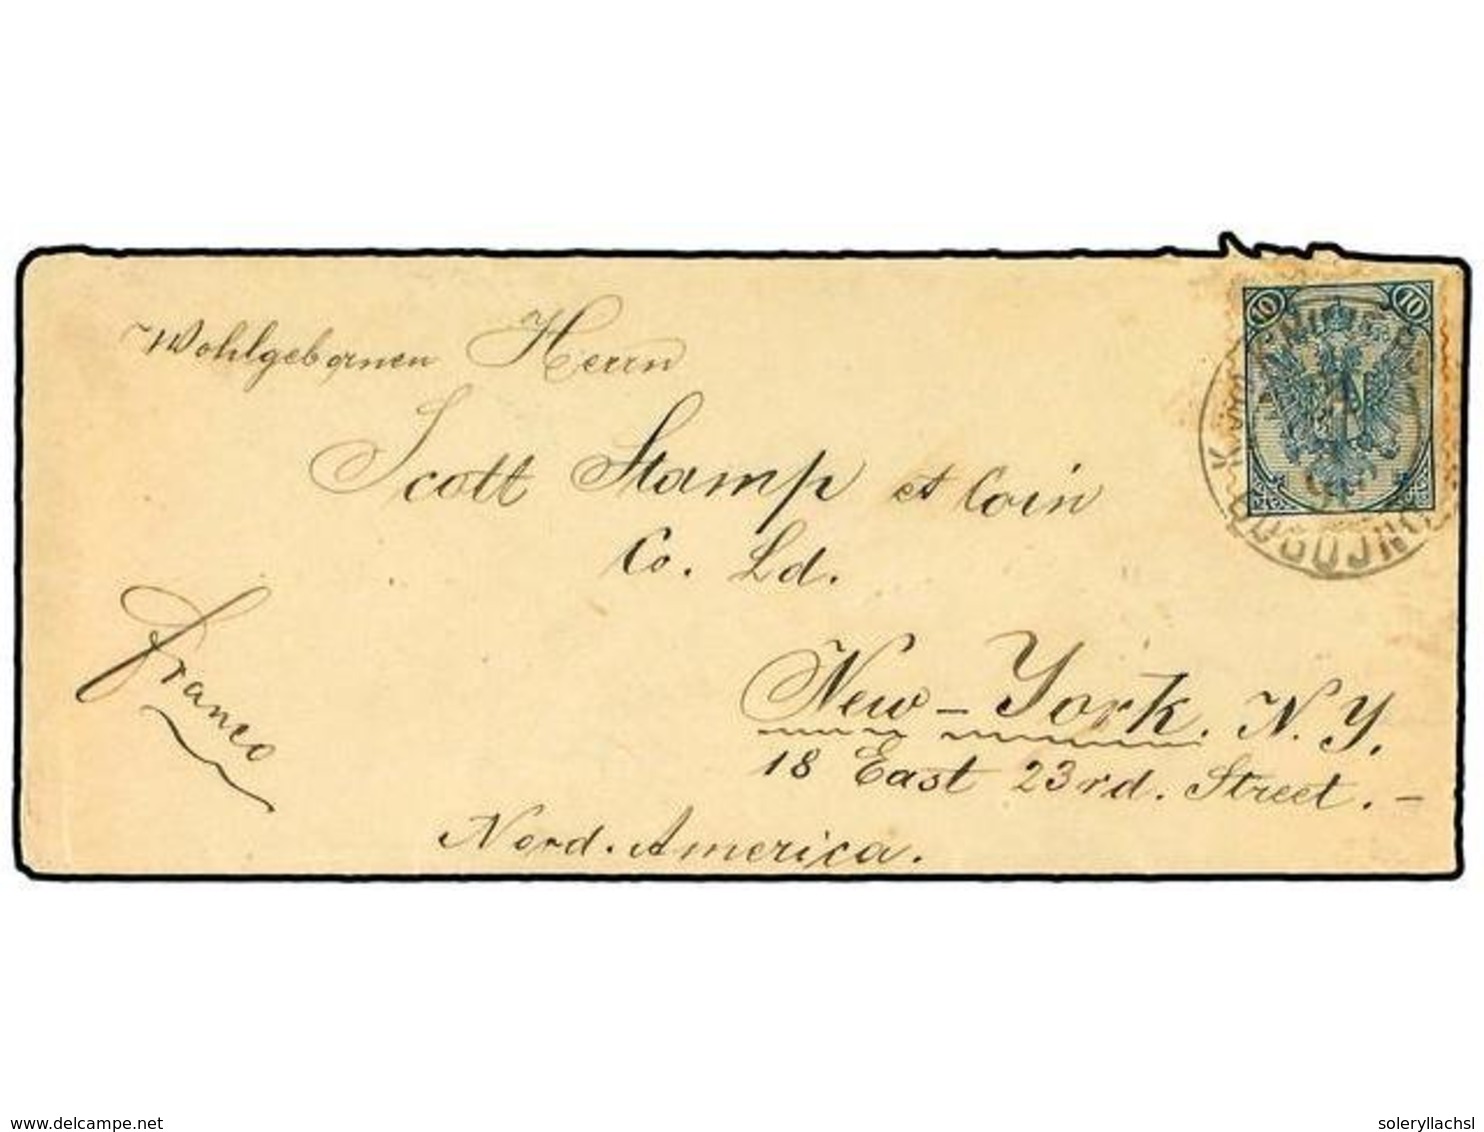 Wohlgebornen Herrn
Scott Stamp et Coin
Co. Ld.
Franco
New-York. N.Y.
18 East 23rd. Street. –
Nord. America.
10 10
delcampe.net
soleryllachsl